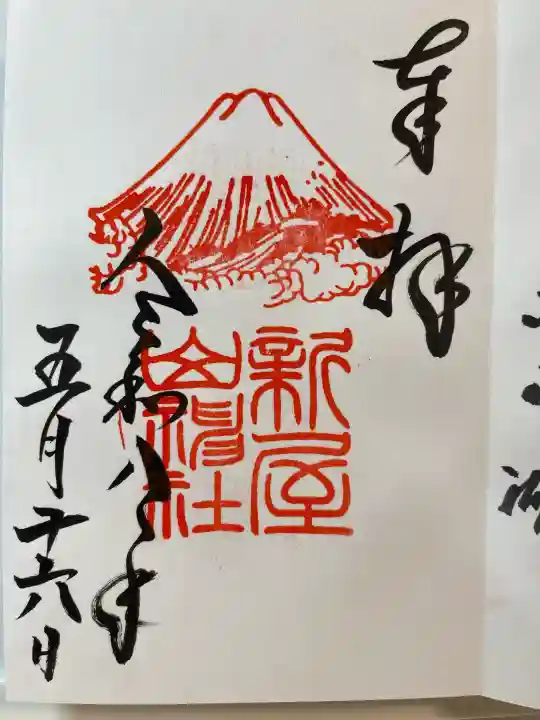 奉拝
新屋
山神社
令和八年
五月十六日